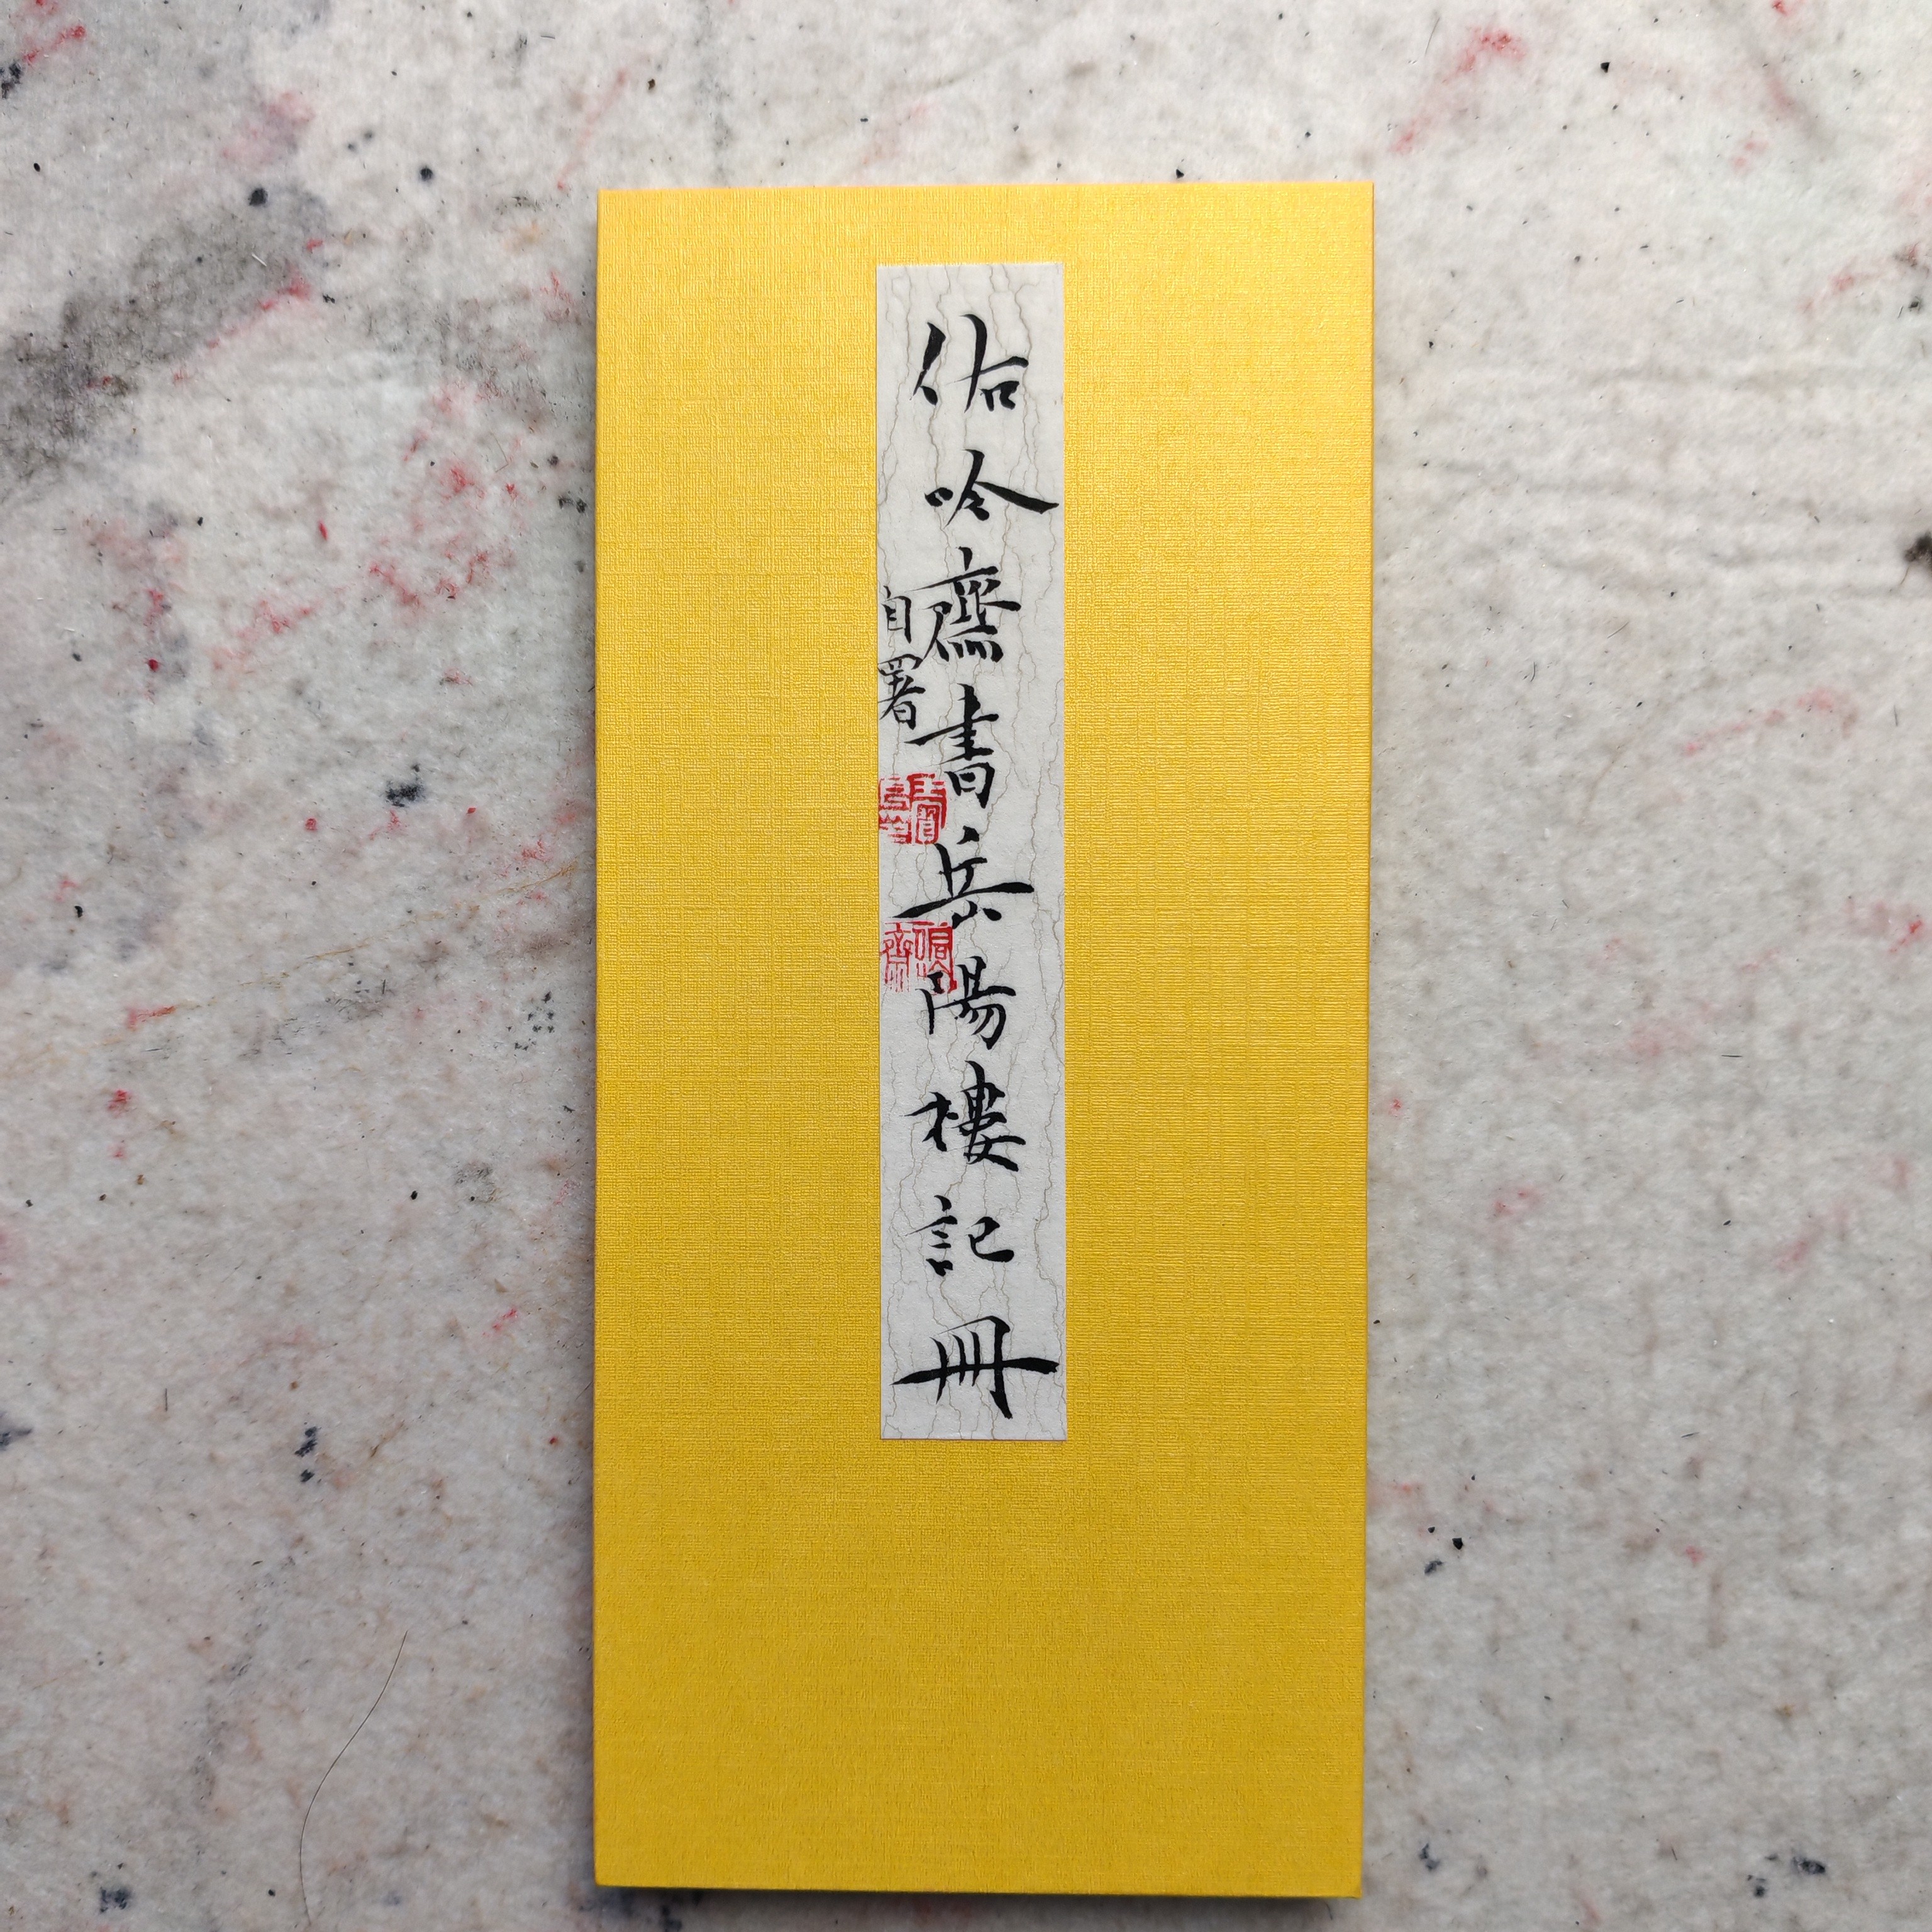 佑吟齋書岳陽樓記冊
自署